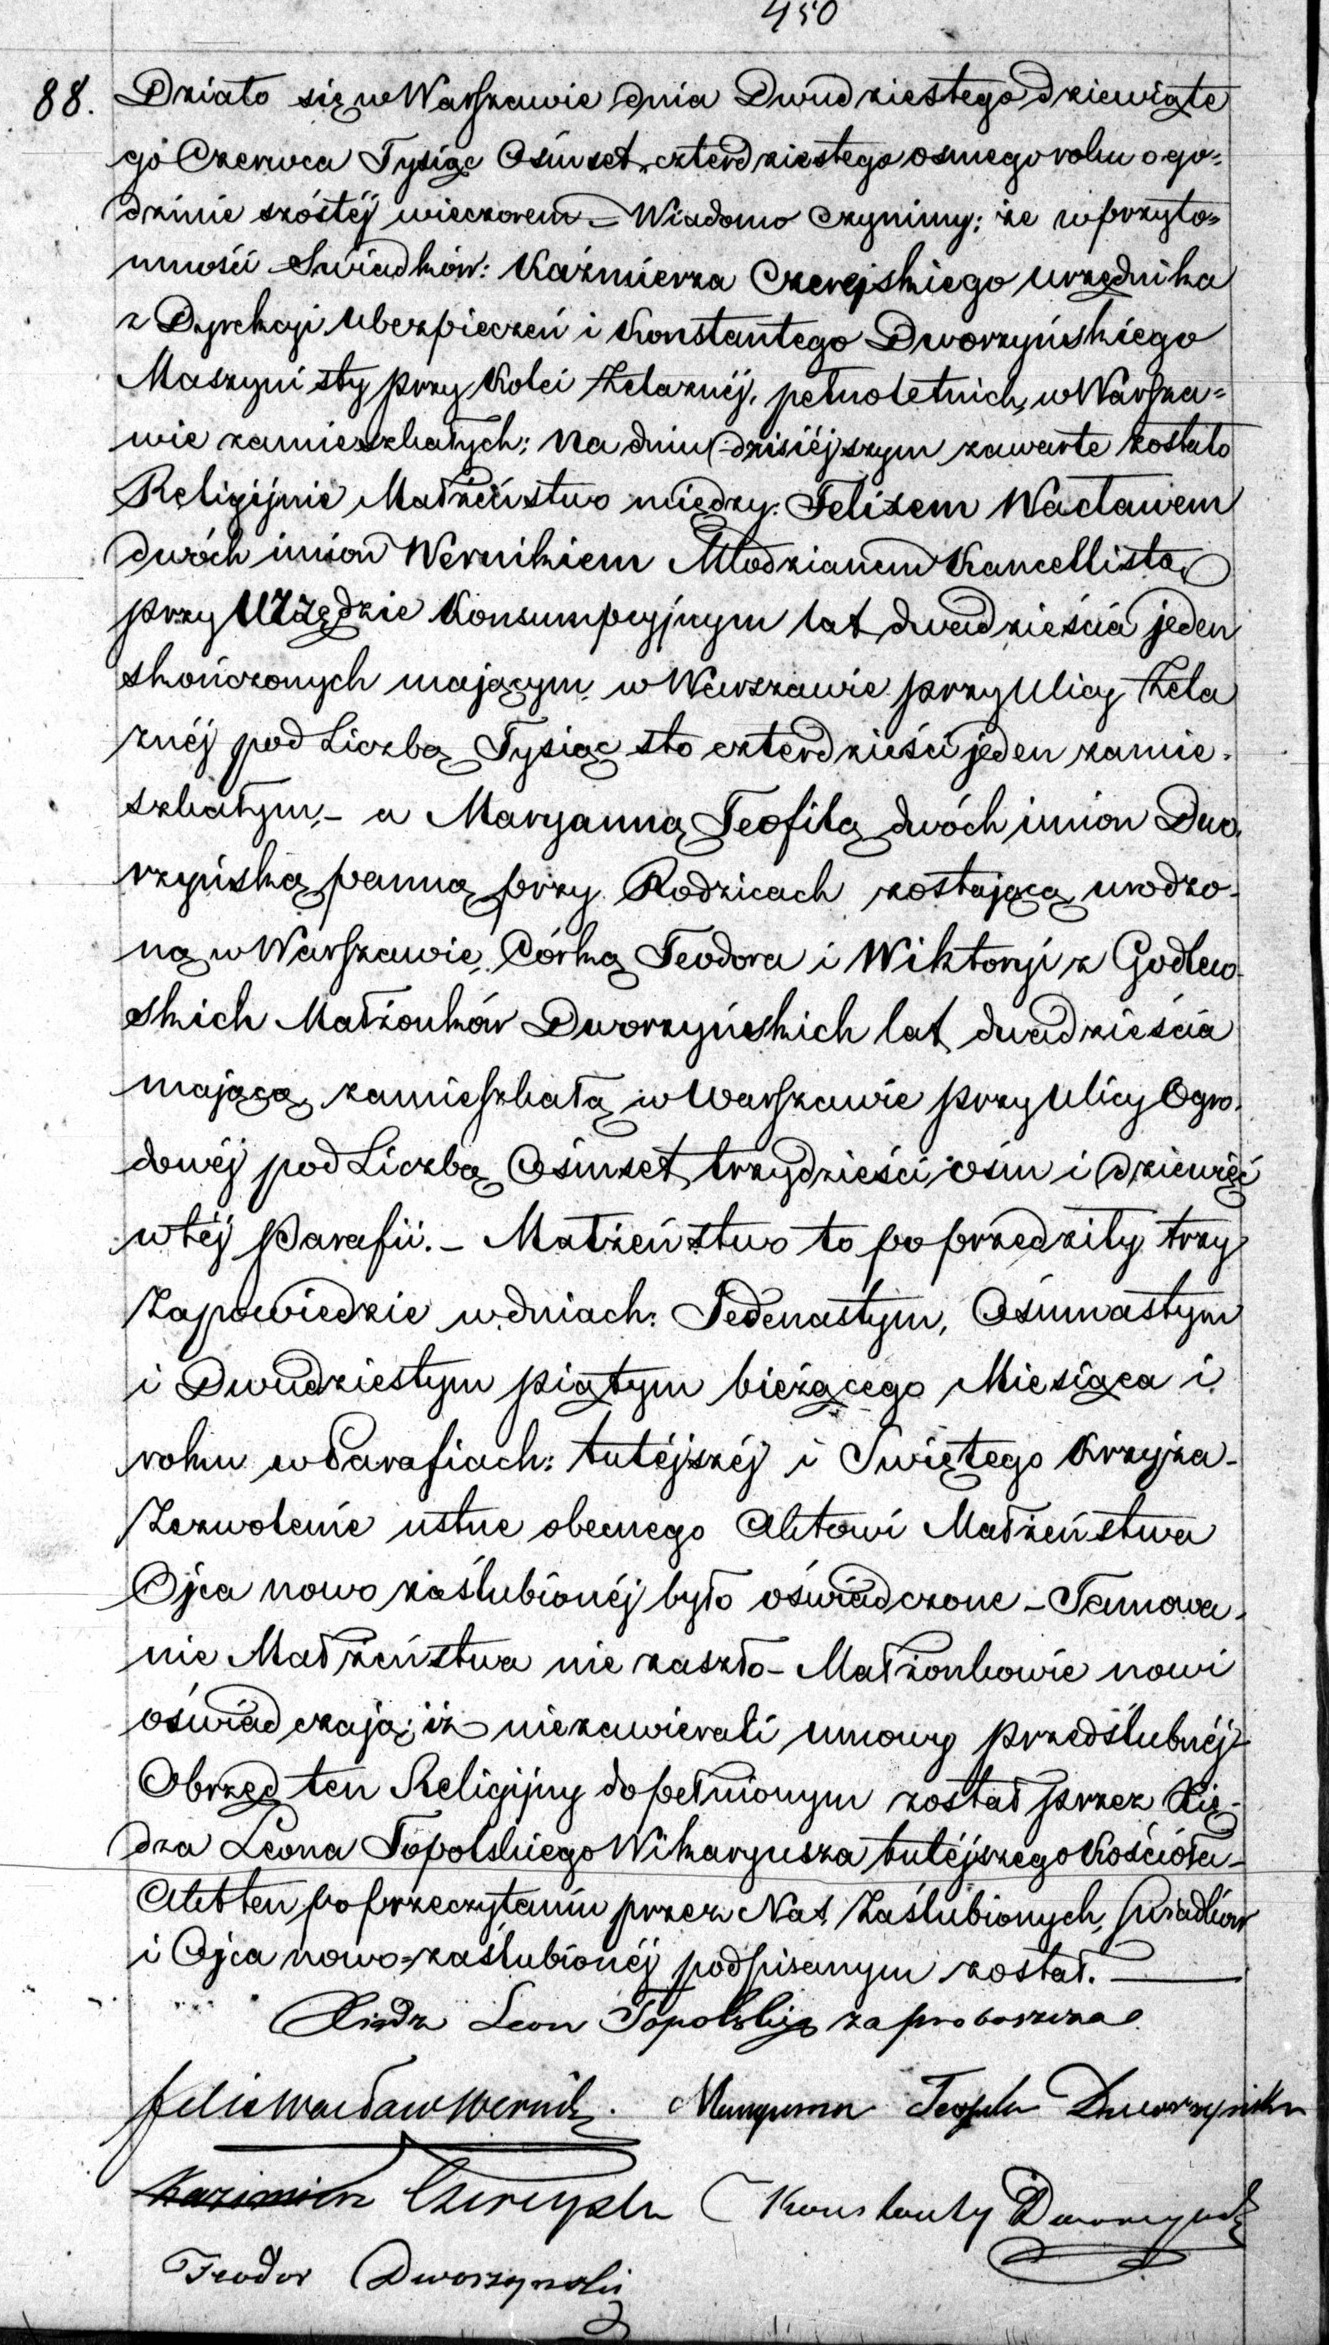 450
88. Działo się w Warszawie dnia Dwudziestego dziewiąte
go Czerwca Tysiąc Ośmset czterdziestego osmego roku o go=
dzinie szóstéj wieczorem – Wiadomo czynimy; że w przyto=
mności Swiadków: Kaźmierza Czerejskiego urzędnika
z Dyrekcyi Ubezpieczeń i Konstantego Dworzyńskiego
Maszynisty przy Kolei Żelaznéj, pełnoletnich, w Warsza=
wie zamieszkałych; Na dniu dzisiéjszym zawarte zostało
Religijnie Małżeństwo między: Felixem Wacławem
dwóch imion Wernikiem Młodzianem Kancellistą
przy Urzędzie Konsumpcyjnym lat dwadzieścia jeden
skończonych mającym w Warszawie przy Ulicy Żela
znéj pod Liczbą Tysiąc sto czterdzieści jeden zamie-
szkałym, – a Maryanną Teofilą dwóch imion Dwo-
rzyńską panną przy Rodzicach zostającą urodzo-
ną w Warszawie, Córką Teodora i Wiktoryi z Godlew-
skich Małżonków Dworzyńskich lat dwadzieścia
mającą zamieszkałą w Warszawie przy Ulicy Ogro-
dowéj pod Liczbą Ośmset trzydzieści ośm i dziewięć
w téj Parafii. – Małżeństwo to poprzedziły trzy
Zapowiedzie w dniach: Jedenastym, Ośmnastym
i Dwudziestym piątym bieżącego Miesiąca i
roku w Parafiach: tutéjszéj i Świętego Krzyża –
Zezwolenie ustne obecnego Aktowi Małżeństwa
Ojca nowo zaślubionéj było oświadczone – Tamowa-
nie Małżeństwa nie zaszło – Małżonkowie nowi
oświadczają; iż niezawierali umowy przedślubnéj –
Obrzęd ten Religijny dopełnionym został przez Xię-
dza Leona Topolskiego Wikaryusza tutéjszego Kościoła –
Akt ten po przeczytaniu przez Nas, Zaślubionych, Świadków
i Ojca nowo=zaślubionéj podpisanym został.
Xiądz Leon Topolski za proboszcza
Felix Wacław Wernik. Maryanna Teofila Dworzyńska
Kazimierz Czerejski Konstanty Dworzyński
Teodor Dworzynski